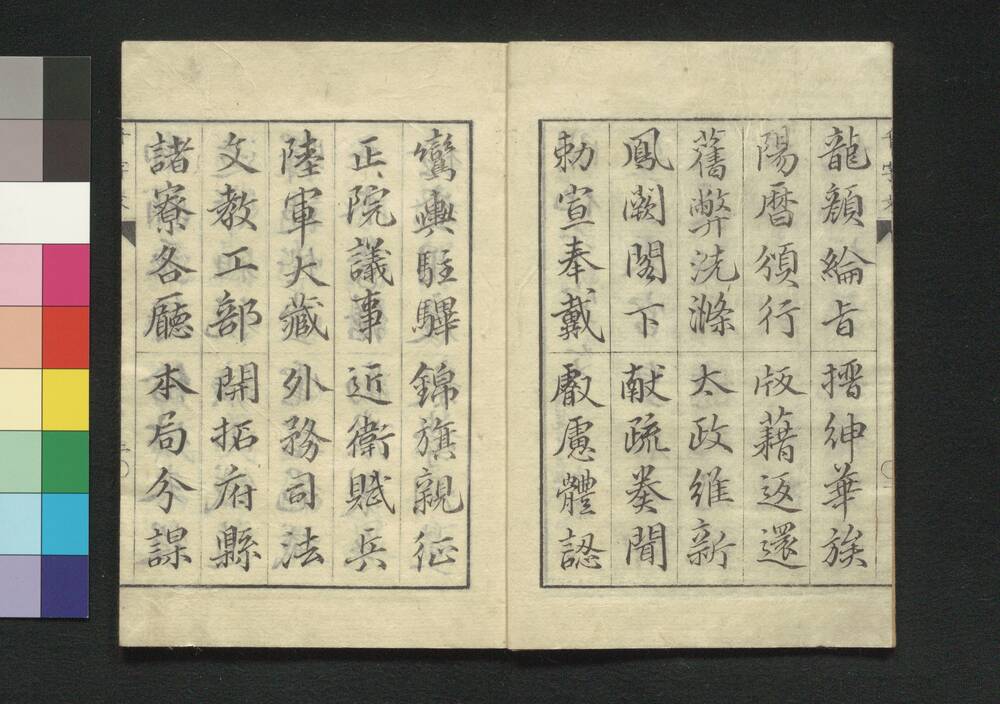 龍顏綸旨 搢紳華族
陽暦頒行 版藉返還
舊弊洗滌 太政維新
鳳闕閣下 献疏奏聞
勅宣奉戴 叡慮體認
鸞輿駐驆 錦旗親征
正院議事 近衛賦兵
陸軍大藏 外務司法
文教工部 開拓府縣
諸寮各廳 本局分課